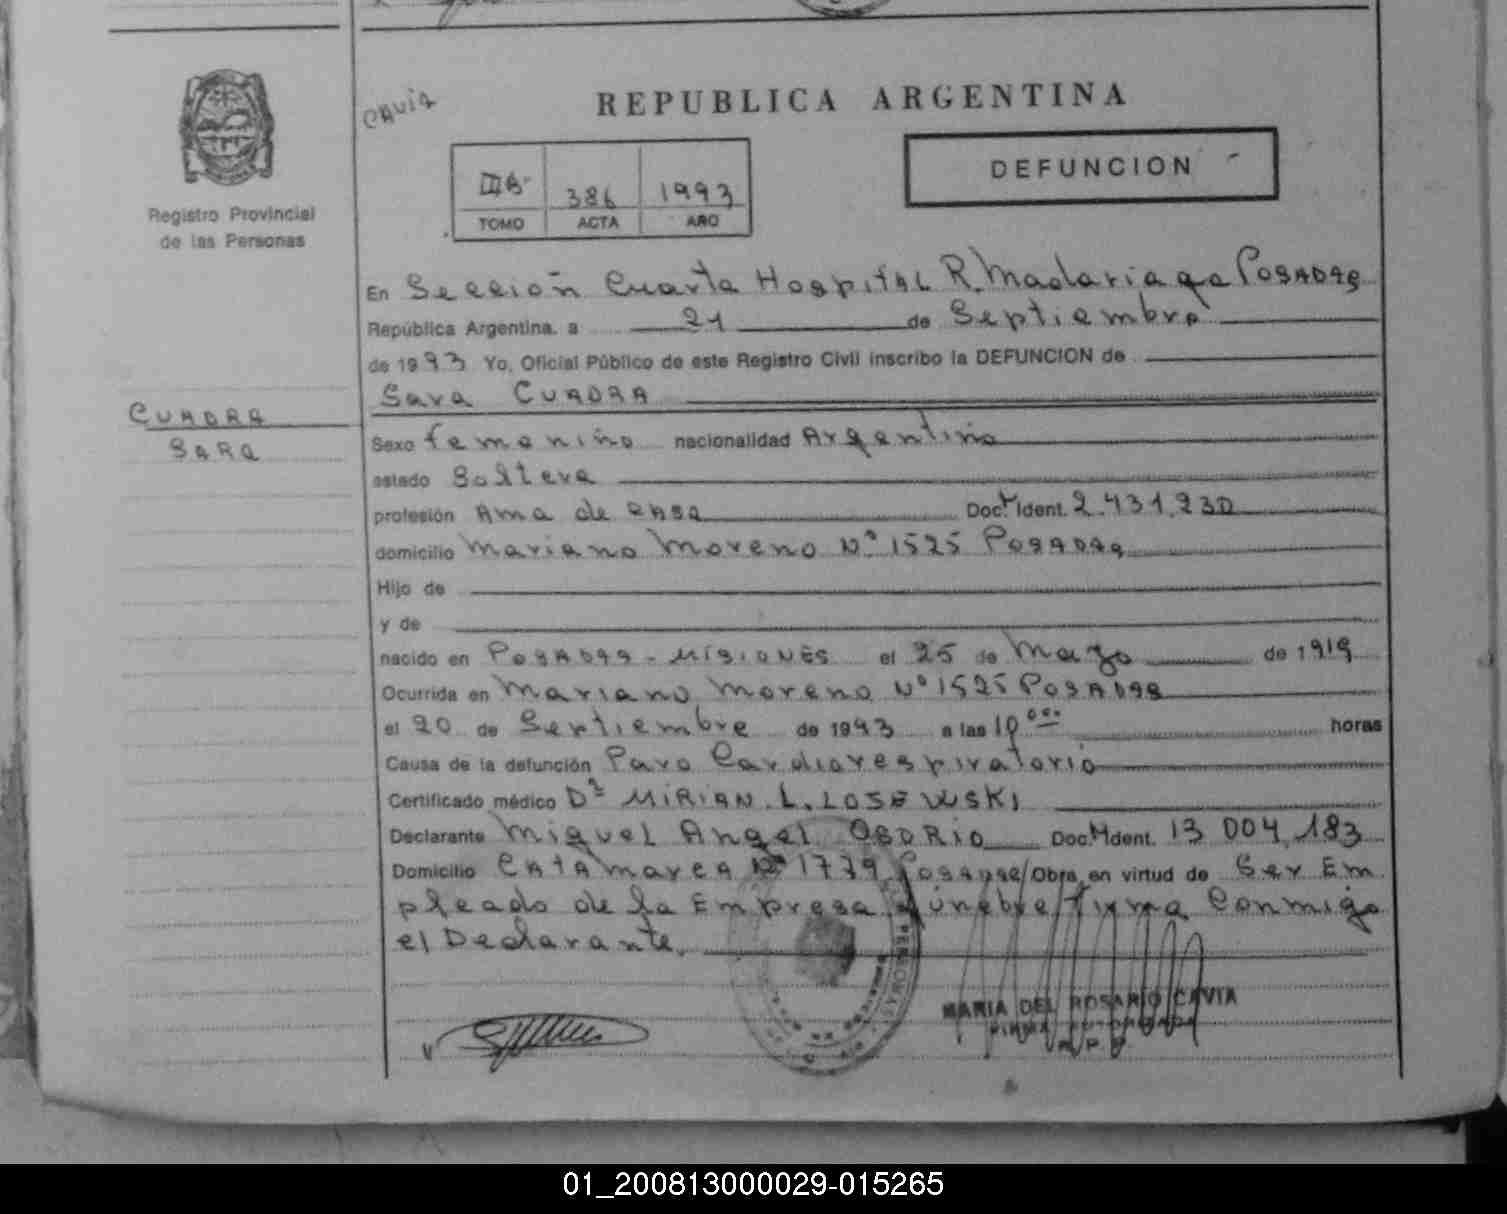 CAVIA
REPUBLICA ARGENTINA
DEFUNCION
386 1993
TOMO ACTA AÑO
Registro Provincial
de las Personas
En Sección Cuarta Hospital R. Madariaga POSADAS
República Argentina, a 21 de Septiembre
de 1993 Yo, Oficial Público de este Registro Civil inscribo la DEFUNCION de
Sara CUADRA
CUADRA
SARA
Sexo femenino nacionalidad Argentina
estado Soltera
profesión Ama de casa Doc. Ident. 2.431.230
domicilio Mariano Moreno Nº 1525 POSADAS
Hijo de
y de
nacido en POSADAS - MISIONES el 25 de Mayo de 1919
Ocurrida en Mariano Moreno Nº 1525 POSADAS
el 20 de Septiembre de 1993 a las horas
Causa de la defunción Paro Cardiorespiratorio
Certificado médico Dra MIRIAN. L. LOSEWSKI
Declarante Miguel Angel OSORIO Doc. Ident. 13 004.183
Domicilio CATAMARCA Nº 1779 Posadas/Obra en virtud de Ser Em
pleado de la Empresa Fúnebre/firma Conmigo
el Declarante.
MARIA DEL ROSARIO CAVIA
FIRMA AUTORIZADA
R.P.P.
01_200813000029-015265